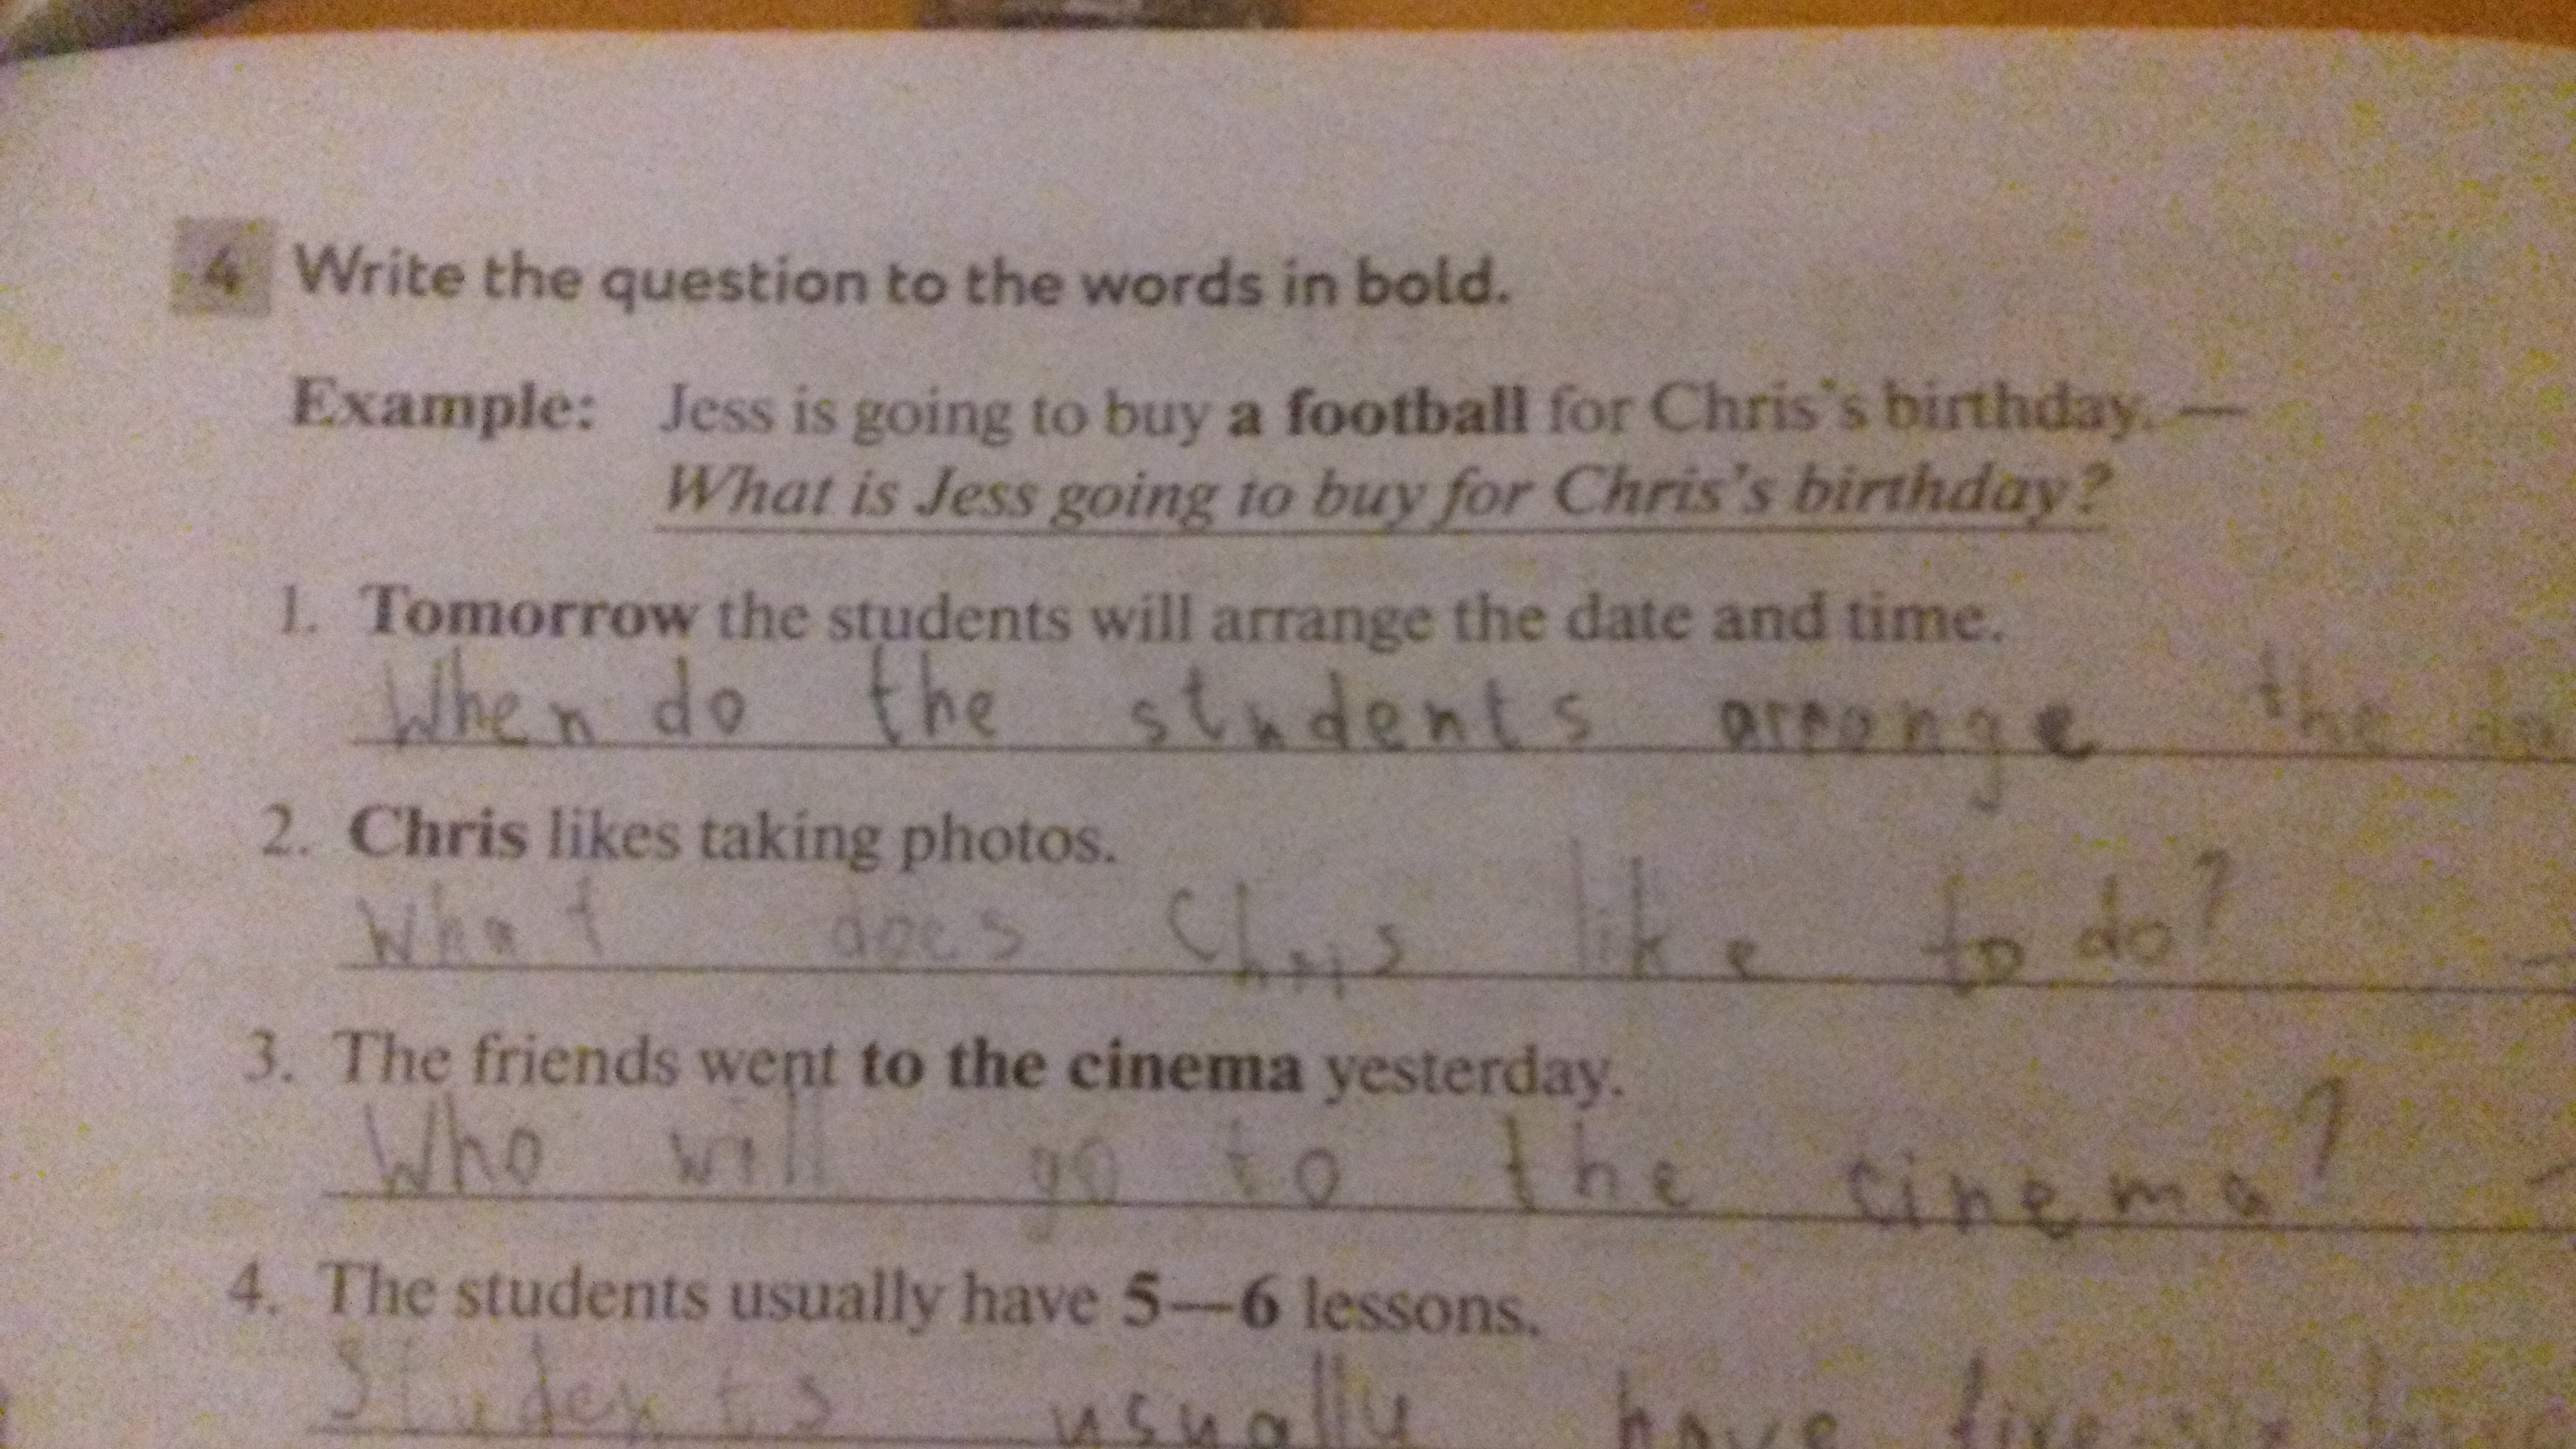 4 Write the question to the words in bold.
Example: Jess is going to buy a football for Chris's birthday. —
What is Jess going to buy for Chris's birthday?
1. Tomorrow the students will arrange the date and time.
When do the students arrange the
2. Chris likes taking photos.
What does Chris like to do?
3. The friends went to the cinema yesterday.
Who will go to the cinema?
4. The students usually have 5—6 lessons.
Students usually have